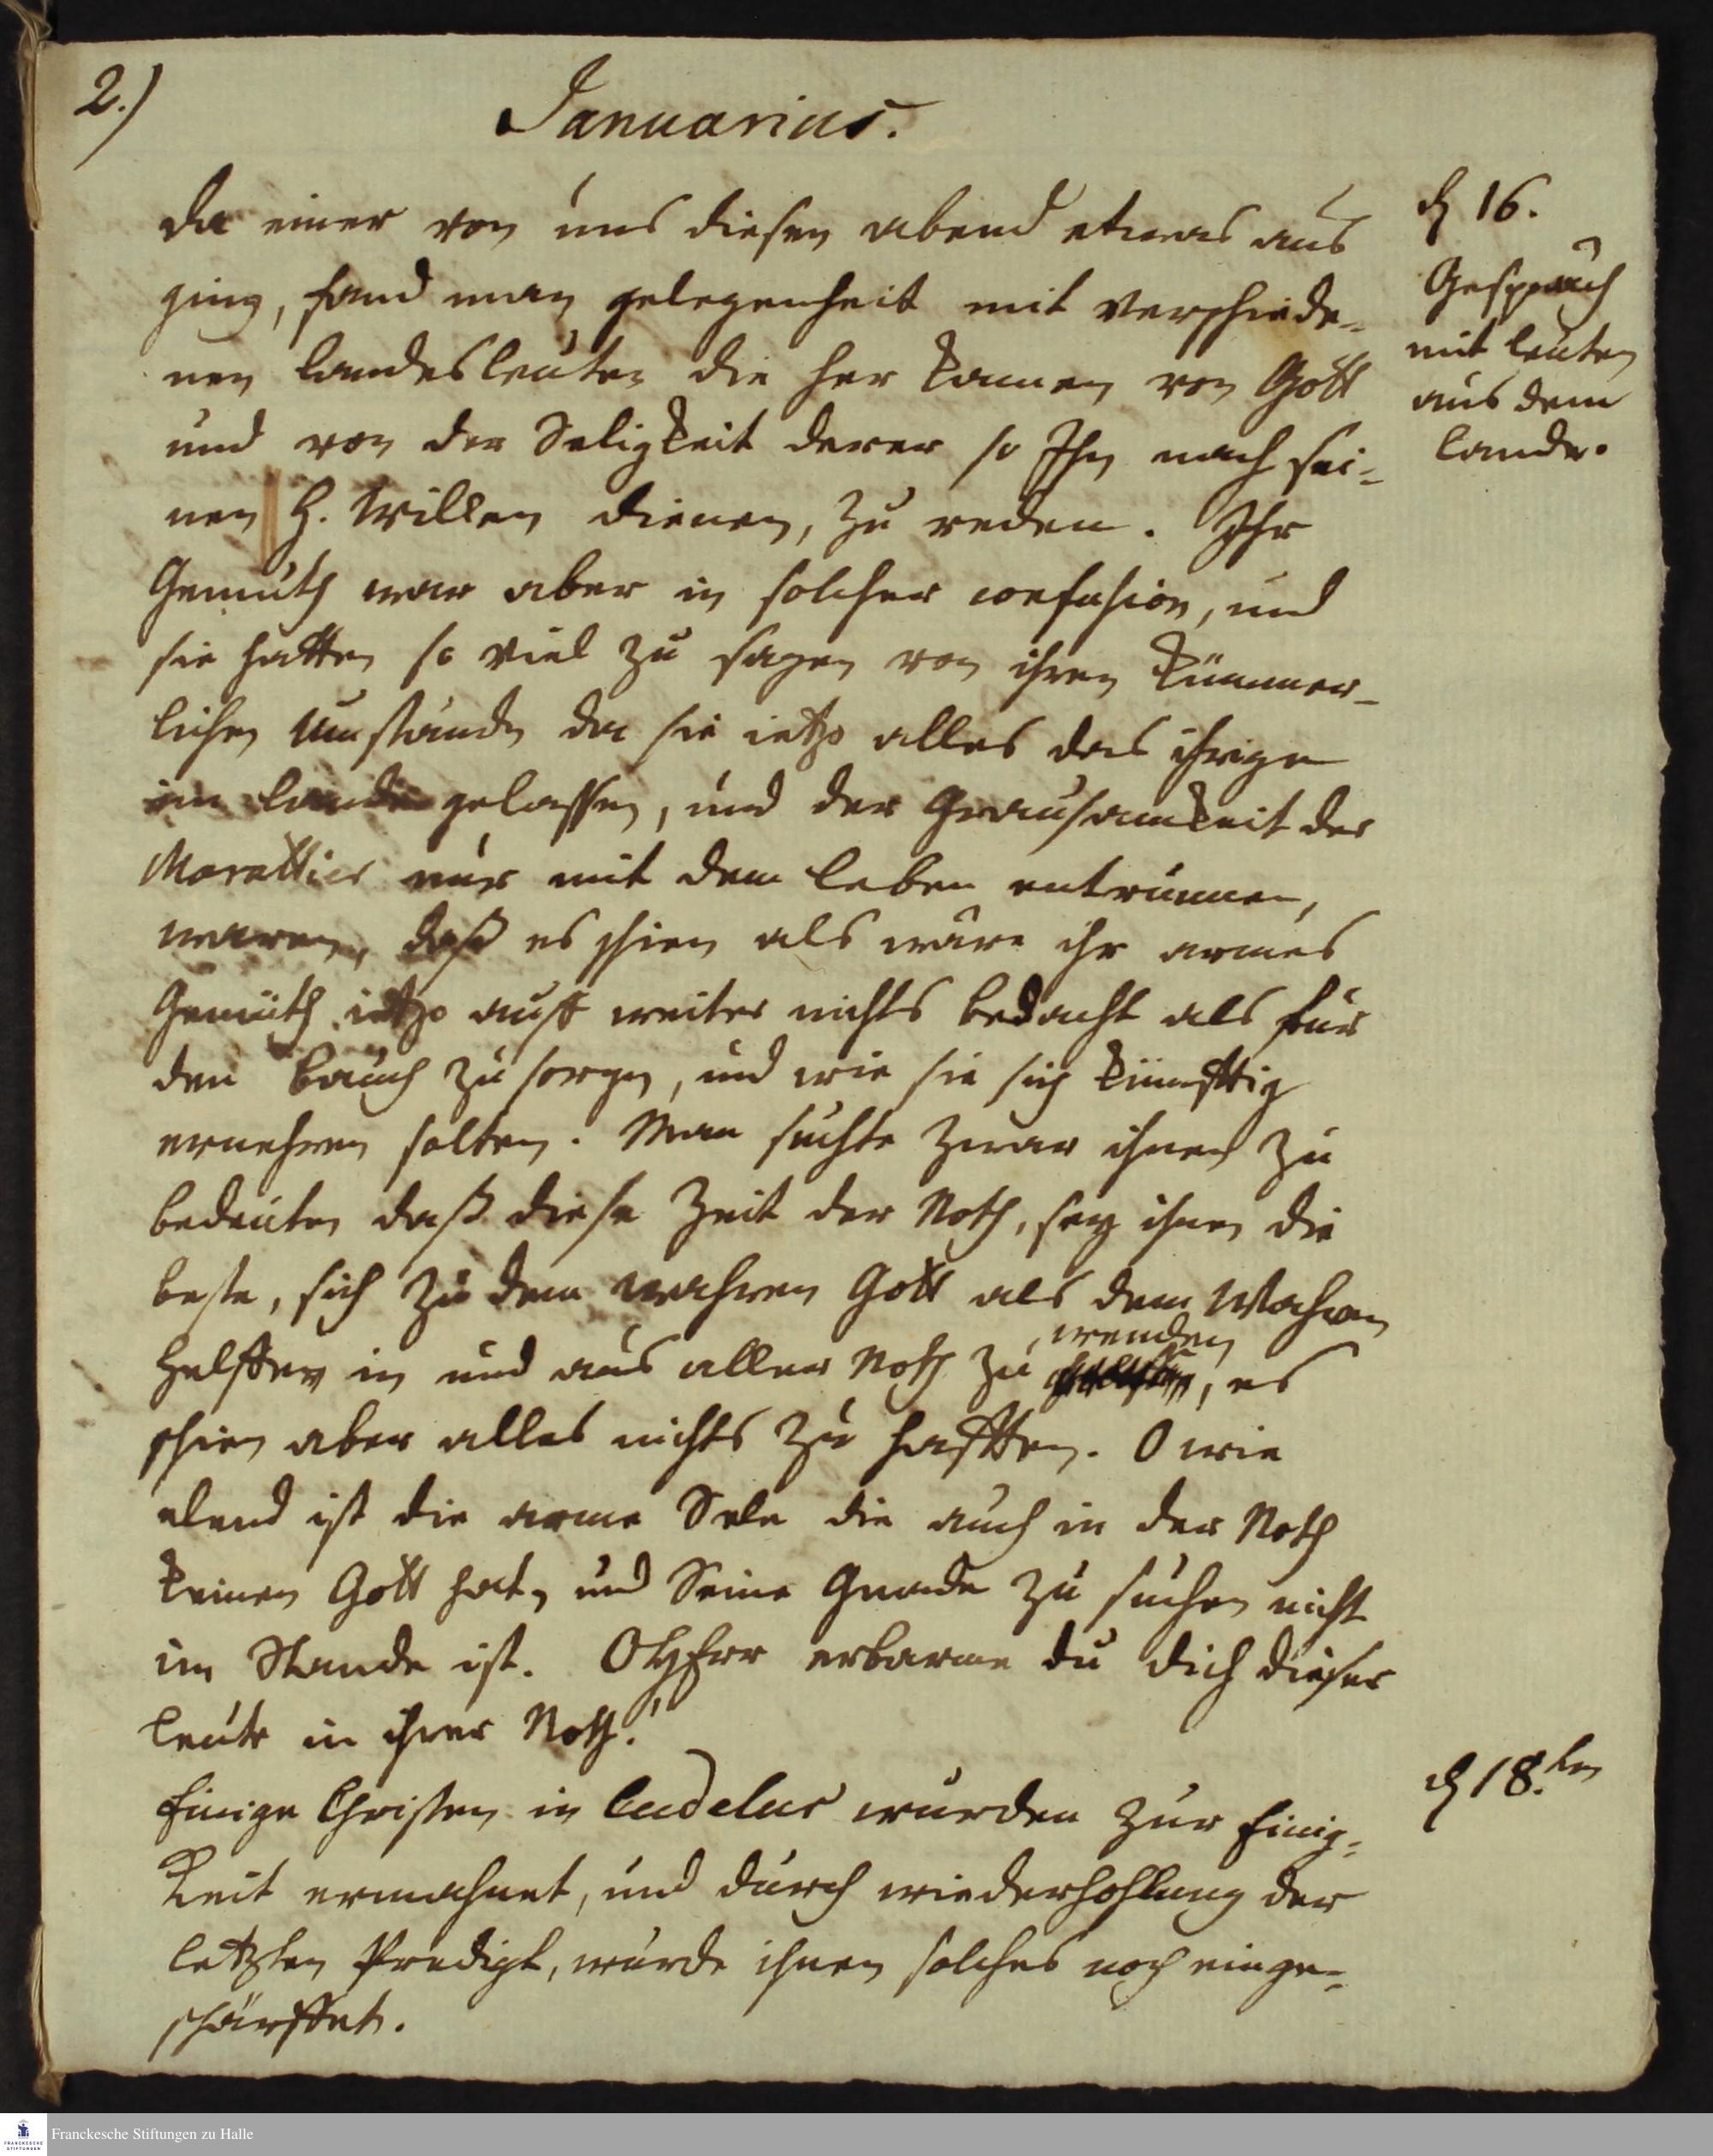 2.)
Januarius.
da einer von uns diesen abend etwas aus
ging, fand man gelegenheit mit verschiede-
nen landesleuten die her kamen von Gott
und von der Seligkeit derer so Ihn nach sei-
nen H. Willen dienen, zu reden. Ihr
Gemüth war aber in solcher confusion, und
sie hatten so viel zu sagen von ihren kümmer-
lichen Umständn da sie ietzo alles das ihrige
im lande gelassen, und der Grausamkeit der
Marattier nur mit dem leben entrunnen,
waren, daß es schien als wäre ihr armes
Gemüth ietzo auff weiter nichts bedacht als für
den bauch zu sorgen, und wie sie sich künfftig
ernehren solten. Man suchte zwar ihnen zu
bedeuten daß diese Zeit der Noth, sey ihnen die
beste, sich zu dem wahren Gott als dem Wahren
wenden
Helffer in und aus aller Noth zu , es
schien aber alles nichts zu hafften. O wie
elend ist die arme Sele die auch in der Noth
keinen Gott hat, und Seine Gnade zu suchen nicht
im Stande ist. O HErr erbarme du dich dieser
leute in ihrer Noth!
Einige Christen in Cudelur wurden zur Einig-
keit ermahnet, und durch wiederhohlung der
letzten Predigt, wurde ihnen solches noch einge-
schärffet.
d 16.
Gespräch
mit leuten
aus dem
lande.
d 18.ten
Franckesche Stiftungen zu Halle
FRANCKESCHE
STIFTUNGEN